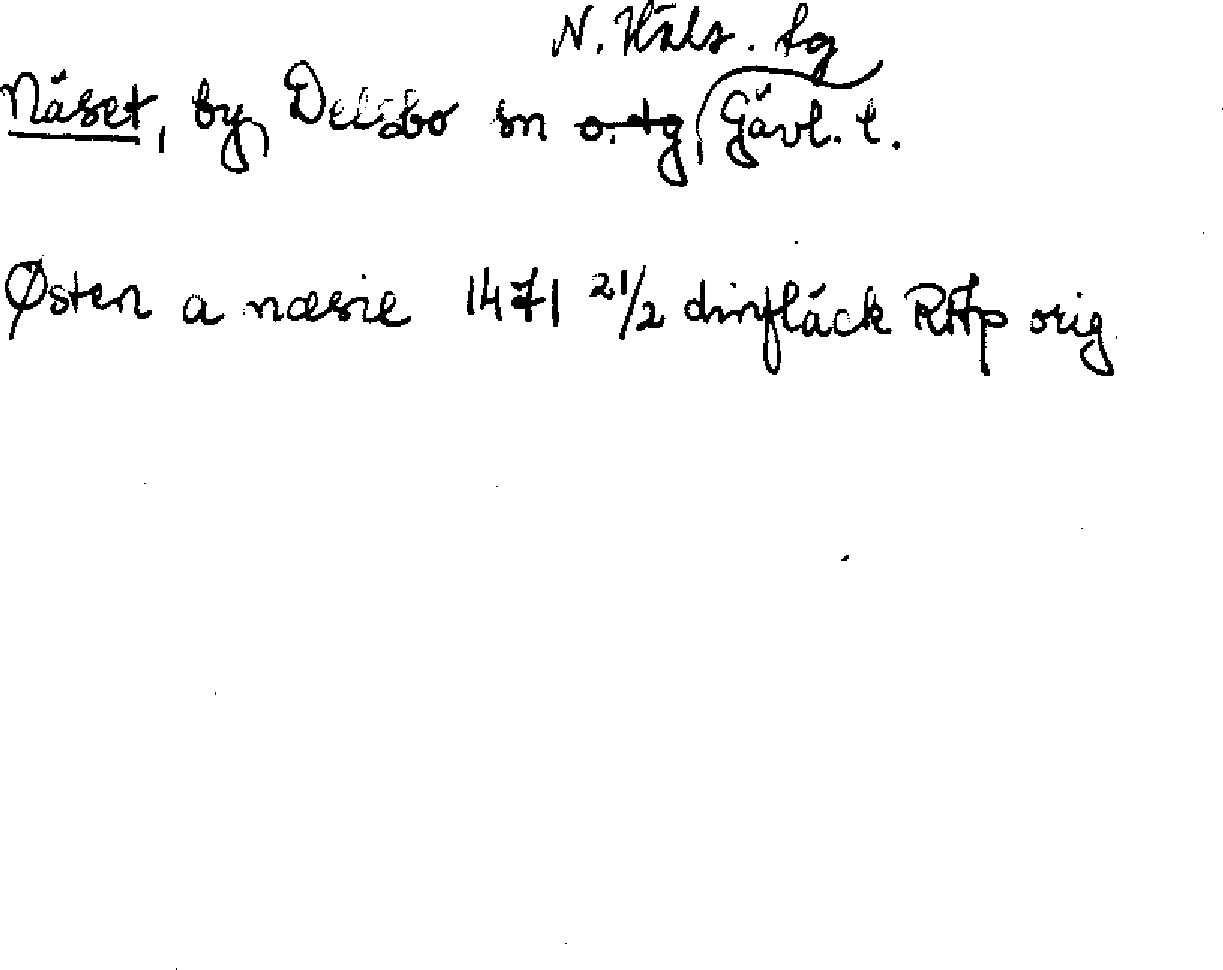 N. Häls. tg
Näset, by, Delsbo sn o. tg, Gävl. l.
Østen a næsie 1471 21/2 Färila RAp orig